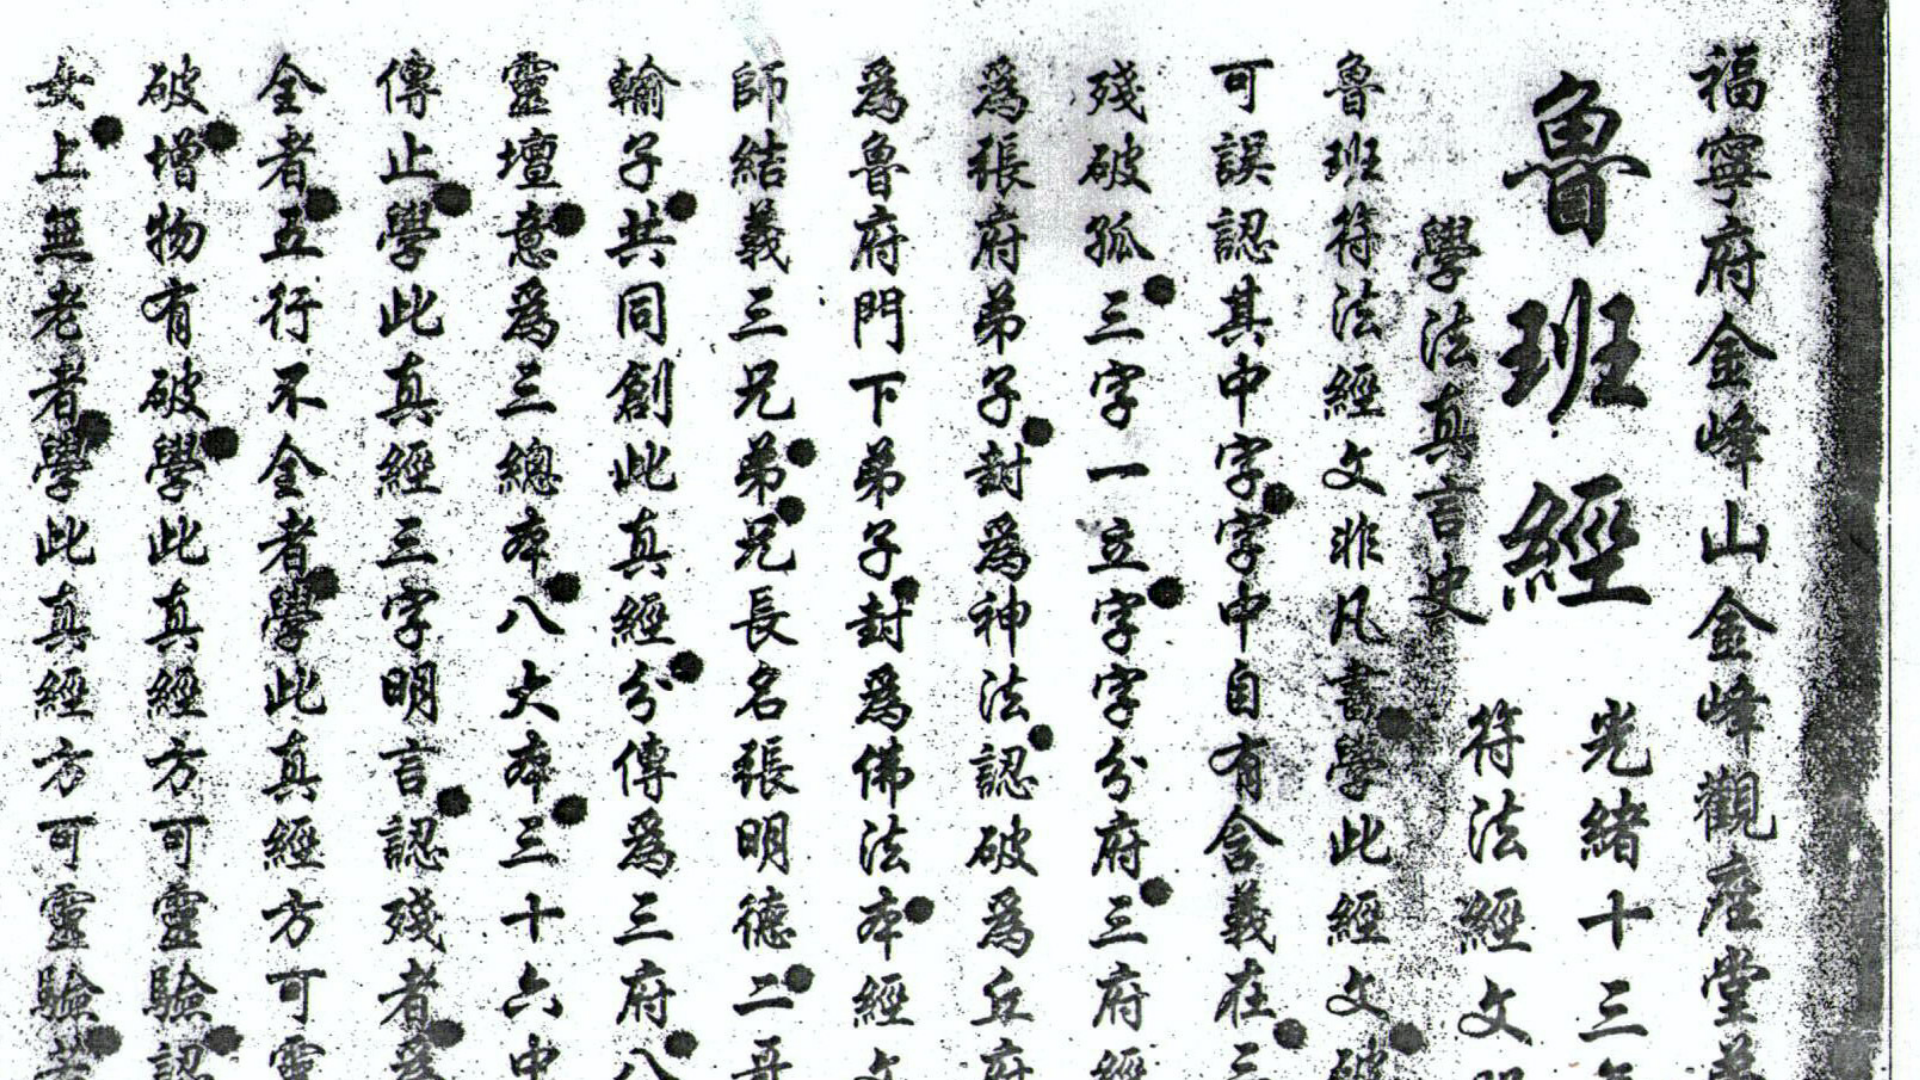 福寧府金峰山金峰觀座堂
魯班經
光緒十三年
符法經文
學法真言史
魯班符法經文非凡書學此經文破
可誤認其中字字中自有含義在三
殘破孤三字一立字字分府三府經
為張府弟子封為神法認破為丘府
為魯府門下弟子封為佛法本經文
師結義三兄弟兄長名張明德二哥
輸子共同創此真經分傳為三府八
靈壇意為三總本八大本三十六中
傳止學此真經三字明言認殘者為
全者五行不全者學此真經方可靈
破增物有破學此真經方可靈驗認
女上無老者學此真經方可靈驗